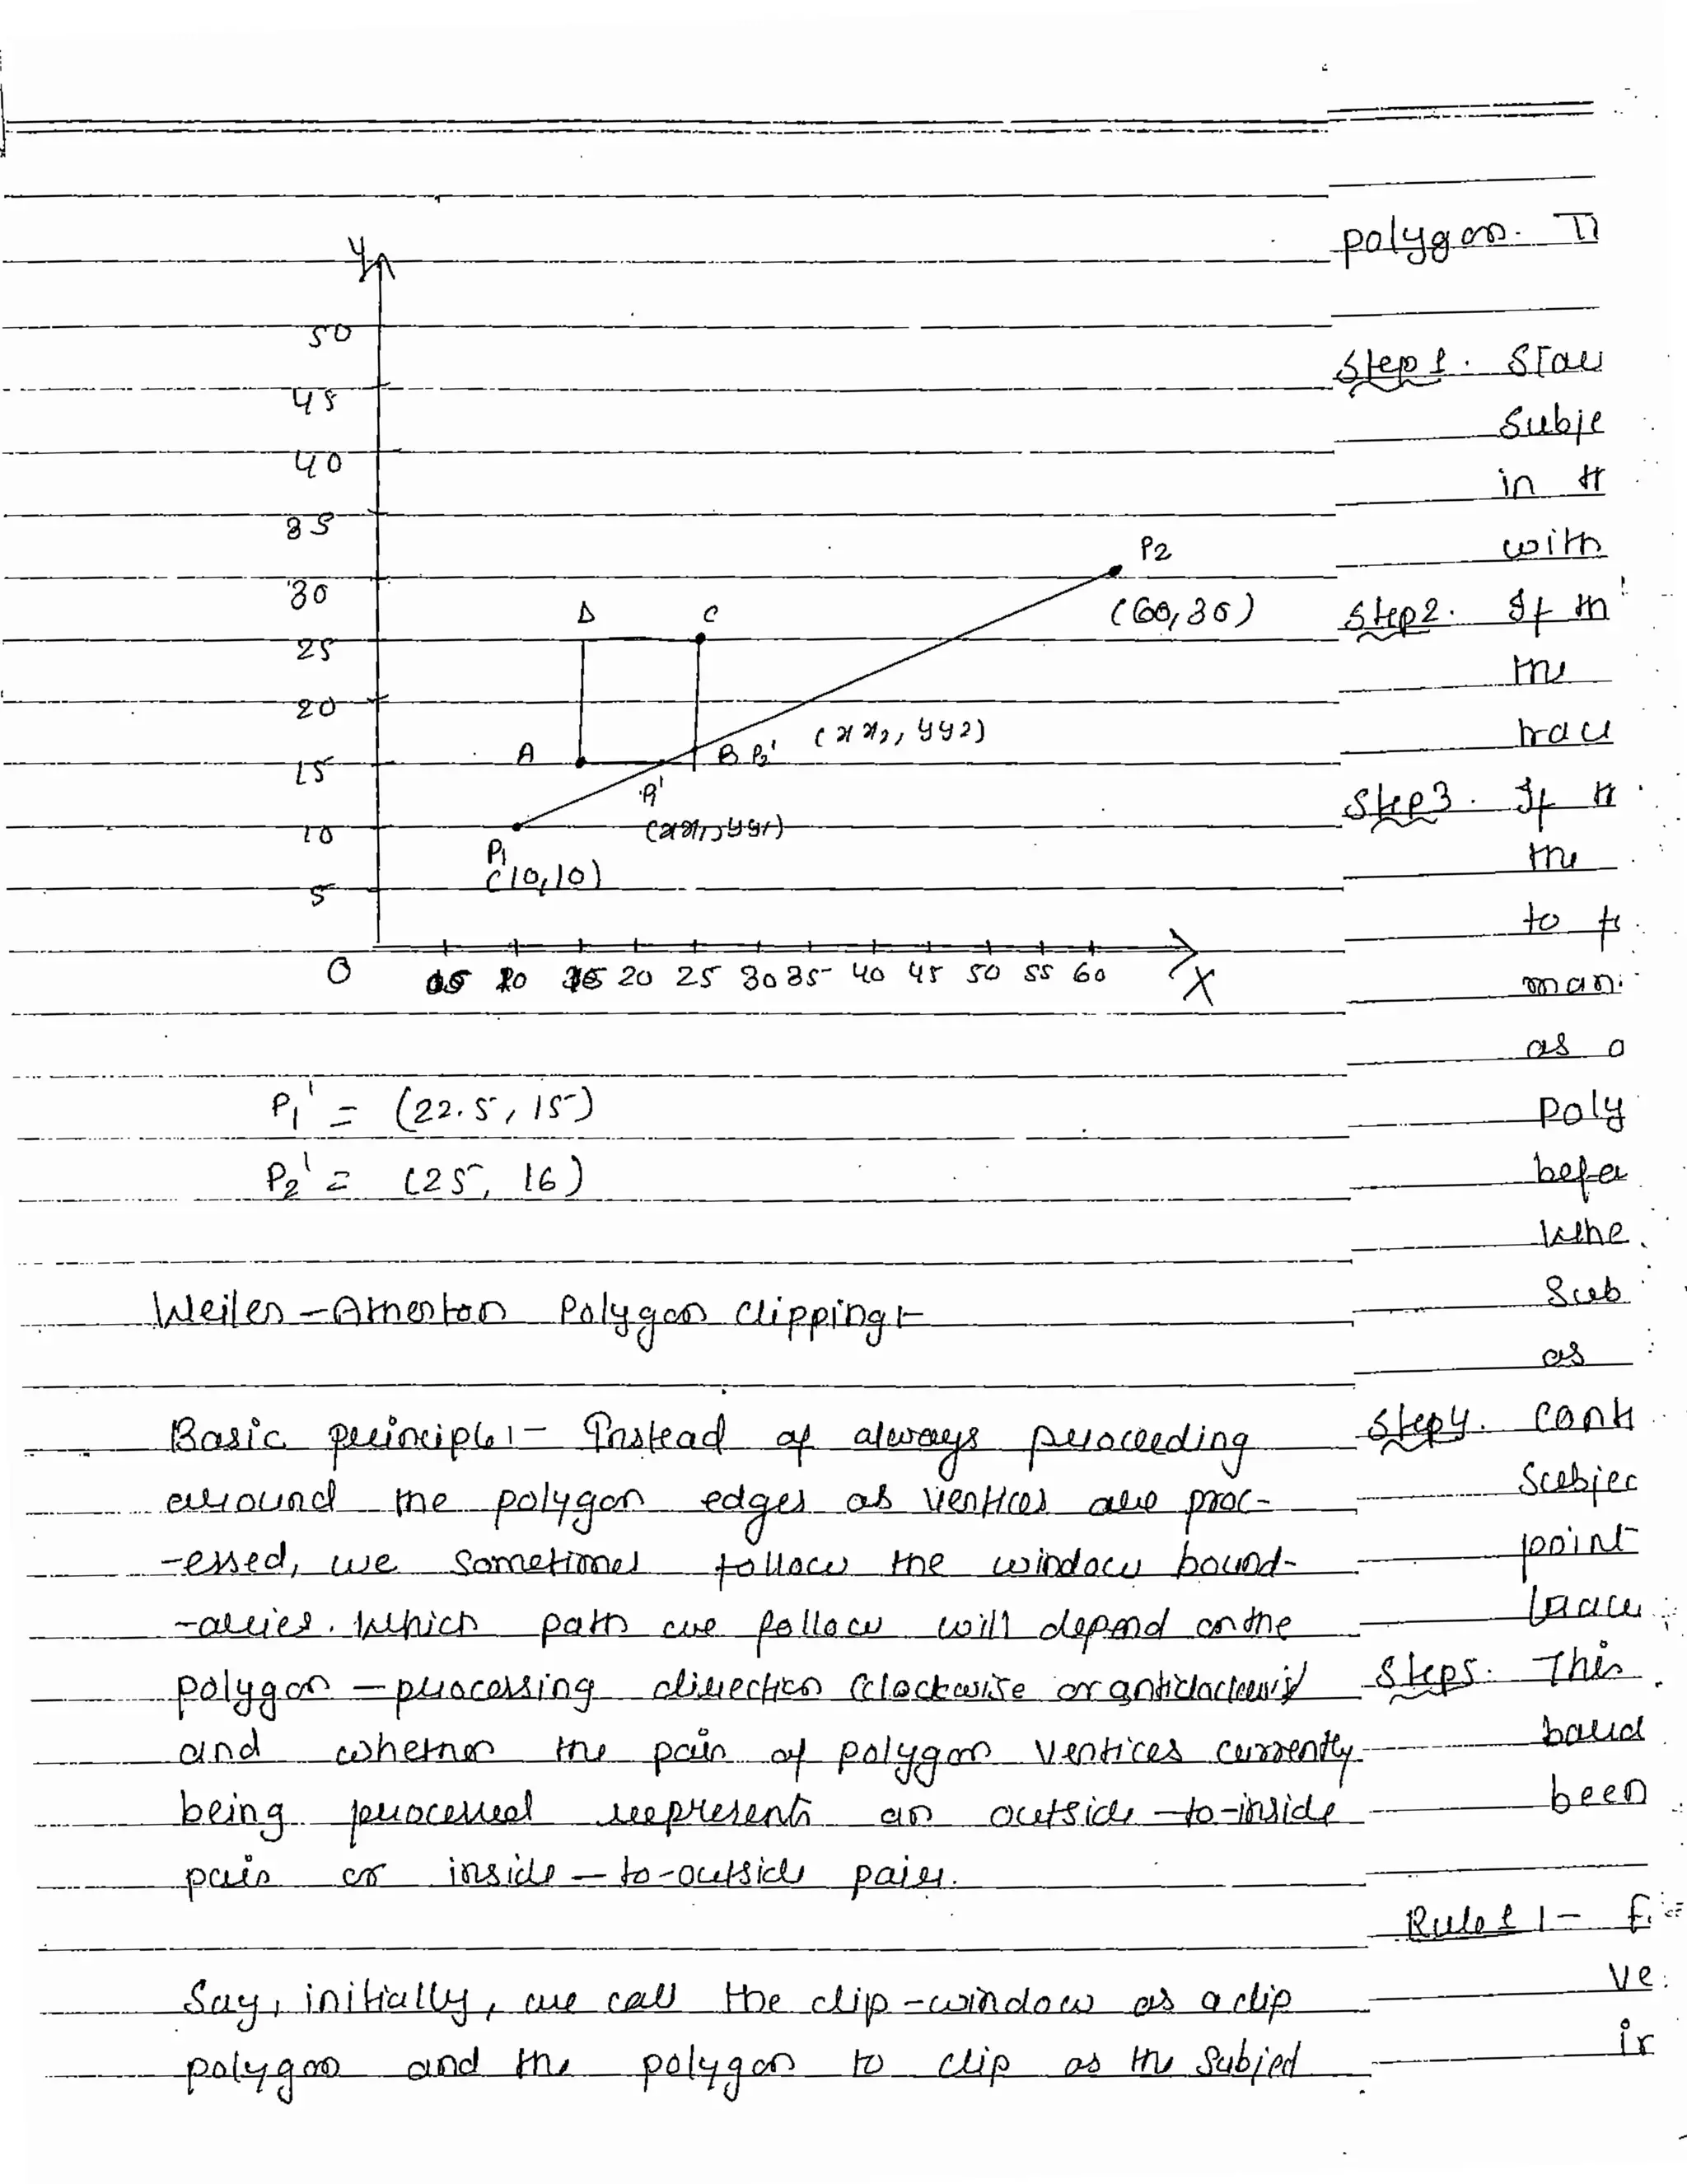 Y
50
45
40
35
30
25
20
15
10
5
O
05 10 15 20 25 30 35 40 45 50 55 60
X
P2
(60, 30)
D C
A B P2'
(xx2, yy2)
P1'
(xx1, yy1)
P1
(10,10)
P1' = (22.5, 15)
P2' = (25, 16)
Weiler-Atherton Polygon Clipping:-
Basic principle:- Instead of always proceeding
around the polygon edges as vertices are proc-
-essed, we sometimes follow the window bound-
-aries. Which path we follow will depend on the
polygon-processing direction (clockwise or anticlockwise)
and whether the pair of polygon vertices currently
being processed represents an outside-to-inside
pair or inside-to-outside pair.
Say, initially, we call the clip-window as a clip
polygon and the polygon to clip as the Subject
polygon.
Step 1.
Subje
in
with
Step 2. If
the
Step 3. If
the
to
man
as a
Poly
Sub
as
Step 4.
Subjec
point
Step 5. This
been
Rule 1:-
ve